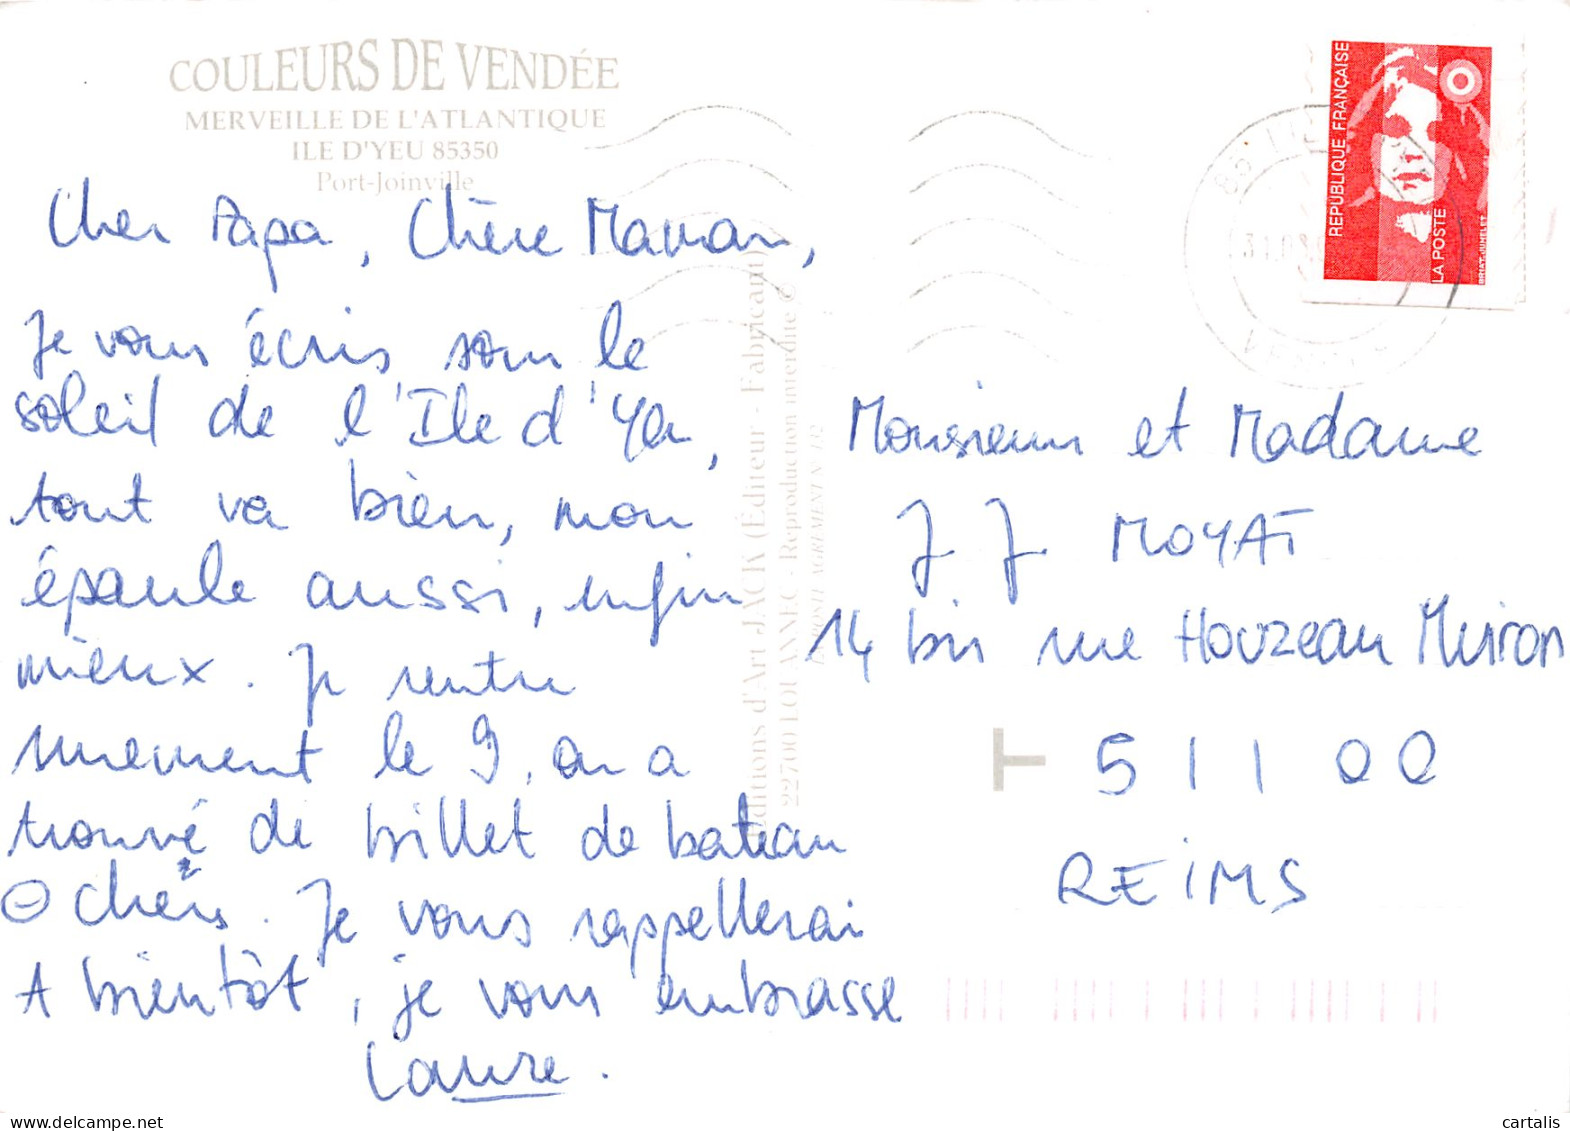 COULEURS DE VENDÉE
MERVEILLE DE L'ATLANTIQUE
ILE D'YEU 85350
Port-Joinville
Cher Papa, Chère Maman,
Je vous écris sous le
soleil de l'Ile d'Yeu,
tout va bien, mon
épaule aussi, enfin
mieux. Je rentre
le 9, on a
trouvé de billet de bateau
⊖ chers. Je vous rappellerai
A bientôt, je vous embrasse
Laure.
Editions d'Art JACK (Editeur - Fabricant)
22700 LOUANNEC - Reproduction interdite ©
LA POSTE AGREMENT N° 132
REPUBLIQUE FRANÇAISE
LA POSTE
BRIAT-JUMELET
85
31.0
Monsieur et Madame
J J. MOYAT
14 bis rue Houzeau Muiron
T 51100
REIMS
www.delcampe.net
cartalis